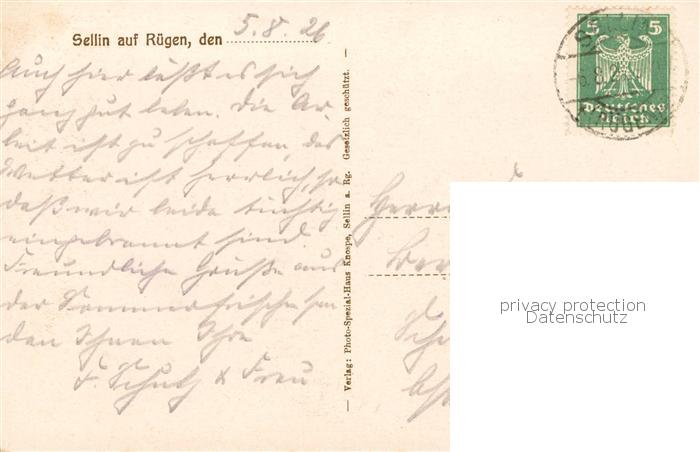 Sellin auf Rügen, den 5.8.26
Auch hier läßt es sich
ganz gut leben. Die Ar-
beit ist zu schaffen, das
Wetter ist herrlich, so
daß wir leider tüchtig
eingebrannt sind.
Freundliche Grüße aus
der Sommerfrische sen-
den Ihnen Ihre
F. Schulz & Frau
— Verlag: Photo-Spezial-Haus Knospe, Sellin a. Rg. Gesetzlich geschützt. —
5 5
Deutsches
Reich
Herrn
privacy protection
Datenschutz